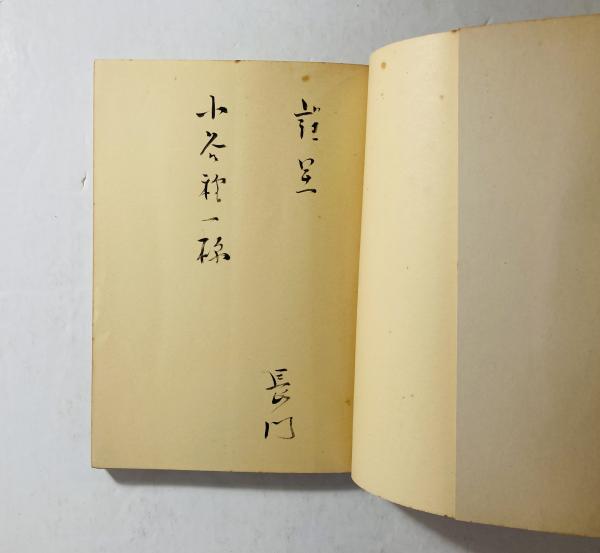 謹呈
長門
小谷穣一様